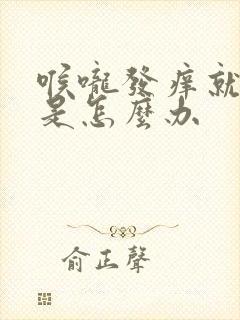 喉嚨發癢就
是怎麼办
俞正聲